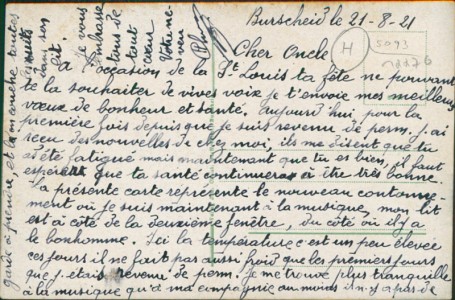 Burscheid le 21-8-21
H
5093
Cher Oncle
A l'occasion de la St Louis ta fête ne pouvant
te la souhaiter de vives voix je t'envoie mes meilleurs
vœux de bonheur et santé. Aujourd'hui pour la
première fois depuis que je suis revenu de perm. j.ai
reçu des nouvelles de chez moi, ils me disent que tu
as été fatigué mais maintenant que tu es bien, il faut
espérer que ta santé continuera à être très bonne.
La présente carte représente le nouveau cantonne-
ment où je suis maintenant à la musique, mon lit
est à côté de la deuxième fenêtre, du côté où il y a
le bonhomme. Ici la température c'est un peu élevée
ces jours il ne fait pas aussi froid que les premiers jours
que j.étais revenu de perm. Je me trouve plus tranquille
à la musique qu'à ma compagnie au moins il n.y a pas de
garde à prendre et l'on couche toutes
les nuits
dans son
lit.
Je vous
embrasse
tous de
tout
cœur
Votre ne-
veu